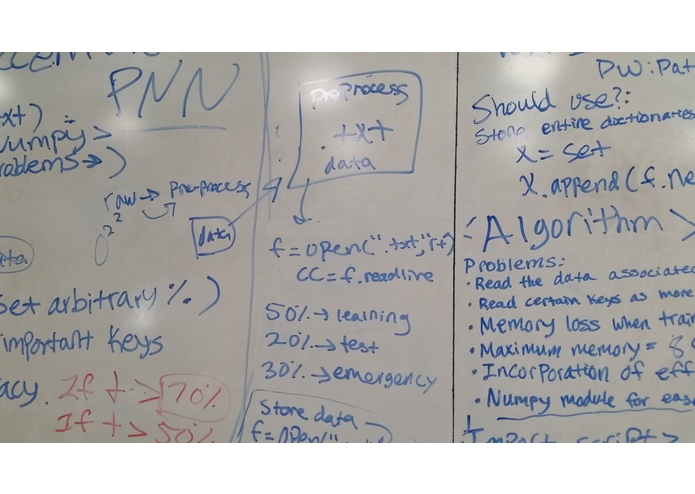 PNN
xt)
Numpy>
roblems→)
raw → pre-process
data
set arbitrary %.)
important keys
acy. If t > 70%
If t > 50%
preprocess
.txt
data
f = open(".txt","r+)
CC = f.readline
50% → learning
20% → test
30% → emergency
Store data
f = open("
PW: Pat
Should use?:
Store entire dictionaries
X = set
X.append(f.ne
Algorithm >
Problems:
• Read the data associated
• Read certain keys as more
• Memory loss when train
• Maximum memory = 8
• Incorporation of eff
• Numpy module for eas
Import script >